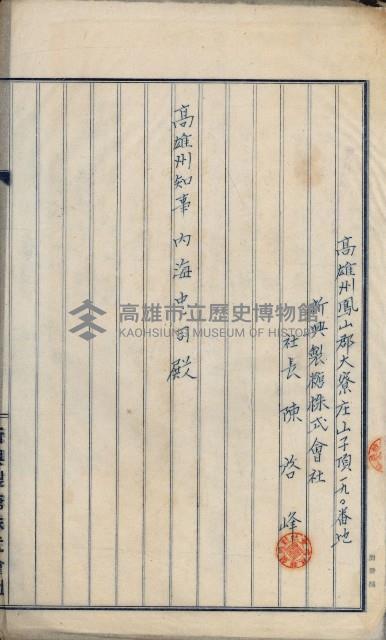 高雄州鳳山郡大寮庄山子頂一九〇番地
新興製糖株式會社
社長 陳啓峰
高雄州知事 内海忠司殿
高雄市立歷史博物館
KAOHSIUNG MUSEUM OF HISTORY
新興製糖株式會社